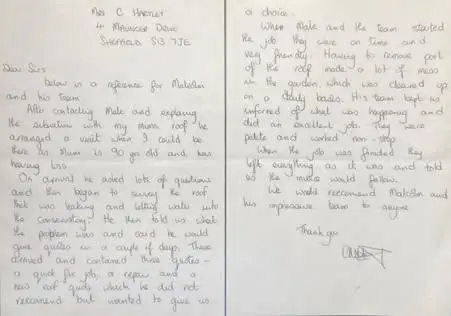 Mrs C Hartley
4 Mauncer Drive
Sheffield S13 7JE
Dear Sirs
Below is a reference for Malcolm
and his team
After contacting Malc and explaining
the situation with my mums roof he
arranged a visit when I could be
there as Mum is 90 yrs old and has
hearing loss.
On arrival he asked lots of questions
and then began to survey the roof
that was leaking and letting water into
the conservatory. He then told us what
the problem was and said he would
give quotes in a couple of days. These
arrived and contained three quotes -
a quick fix job, a repair and a
new roof quote which he did not
reccomend but wanted to give us
a choice.
When Malc and the team started
the job they were on time and
very friendly. Having to remove part
of the roof made a lot of mess
in the garden, which was cleaned up
on a daily bases. His team kept us
informed of what was happening and
did an excellent job. They were
polite and worked non-stop
When the job was finished they
left everything as it was and told
us the invoice would follow.
We would reccomend Malcolm and
his impressive team to anyone
Thank you